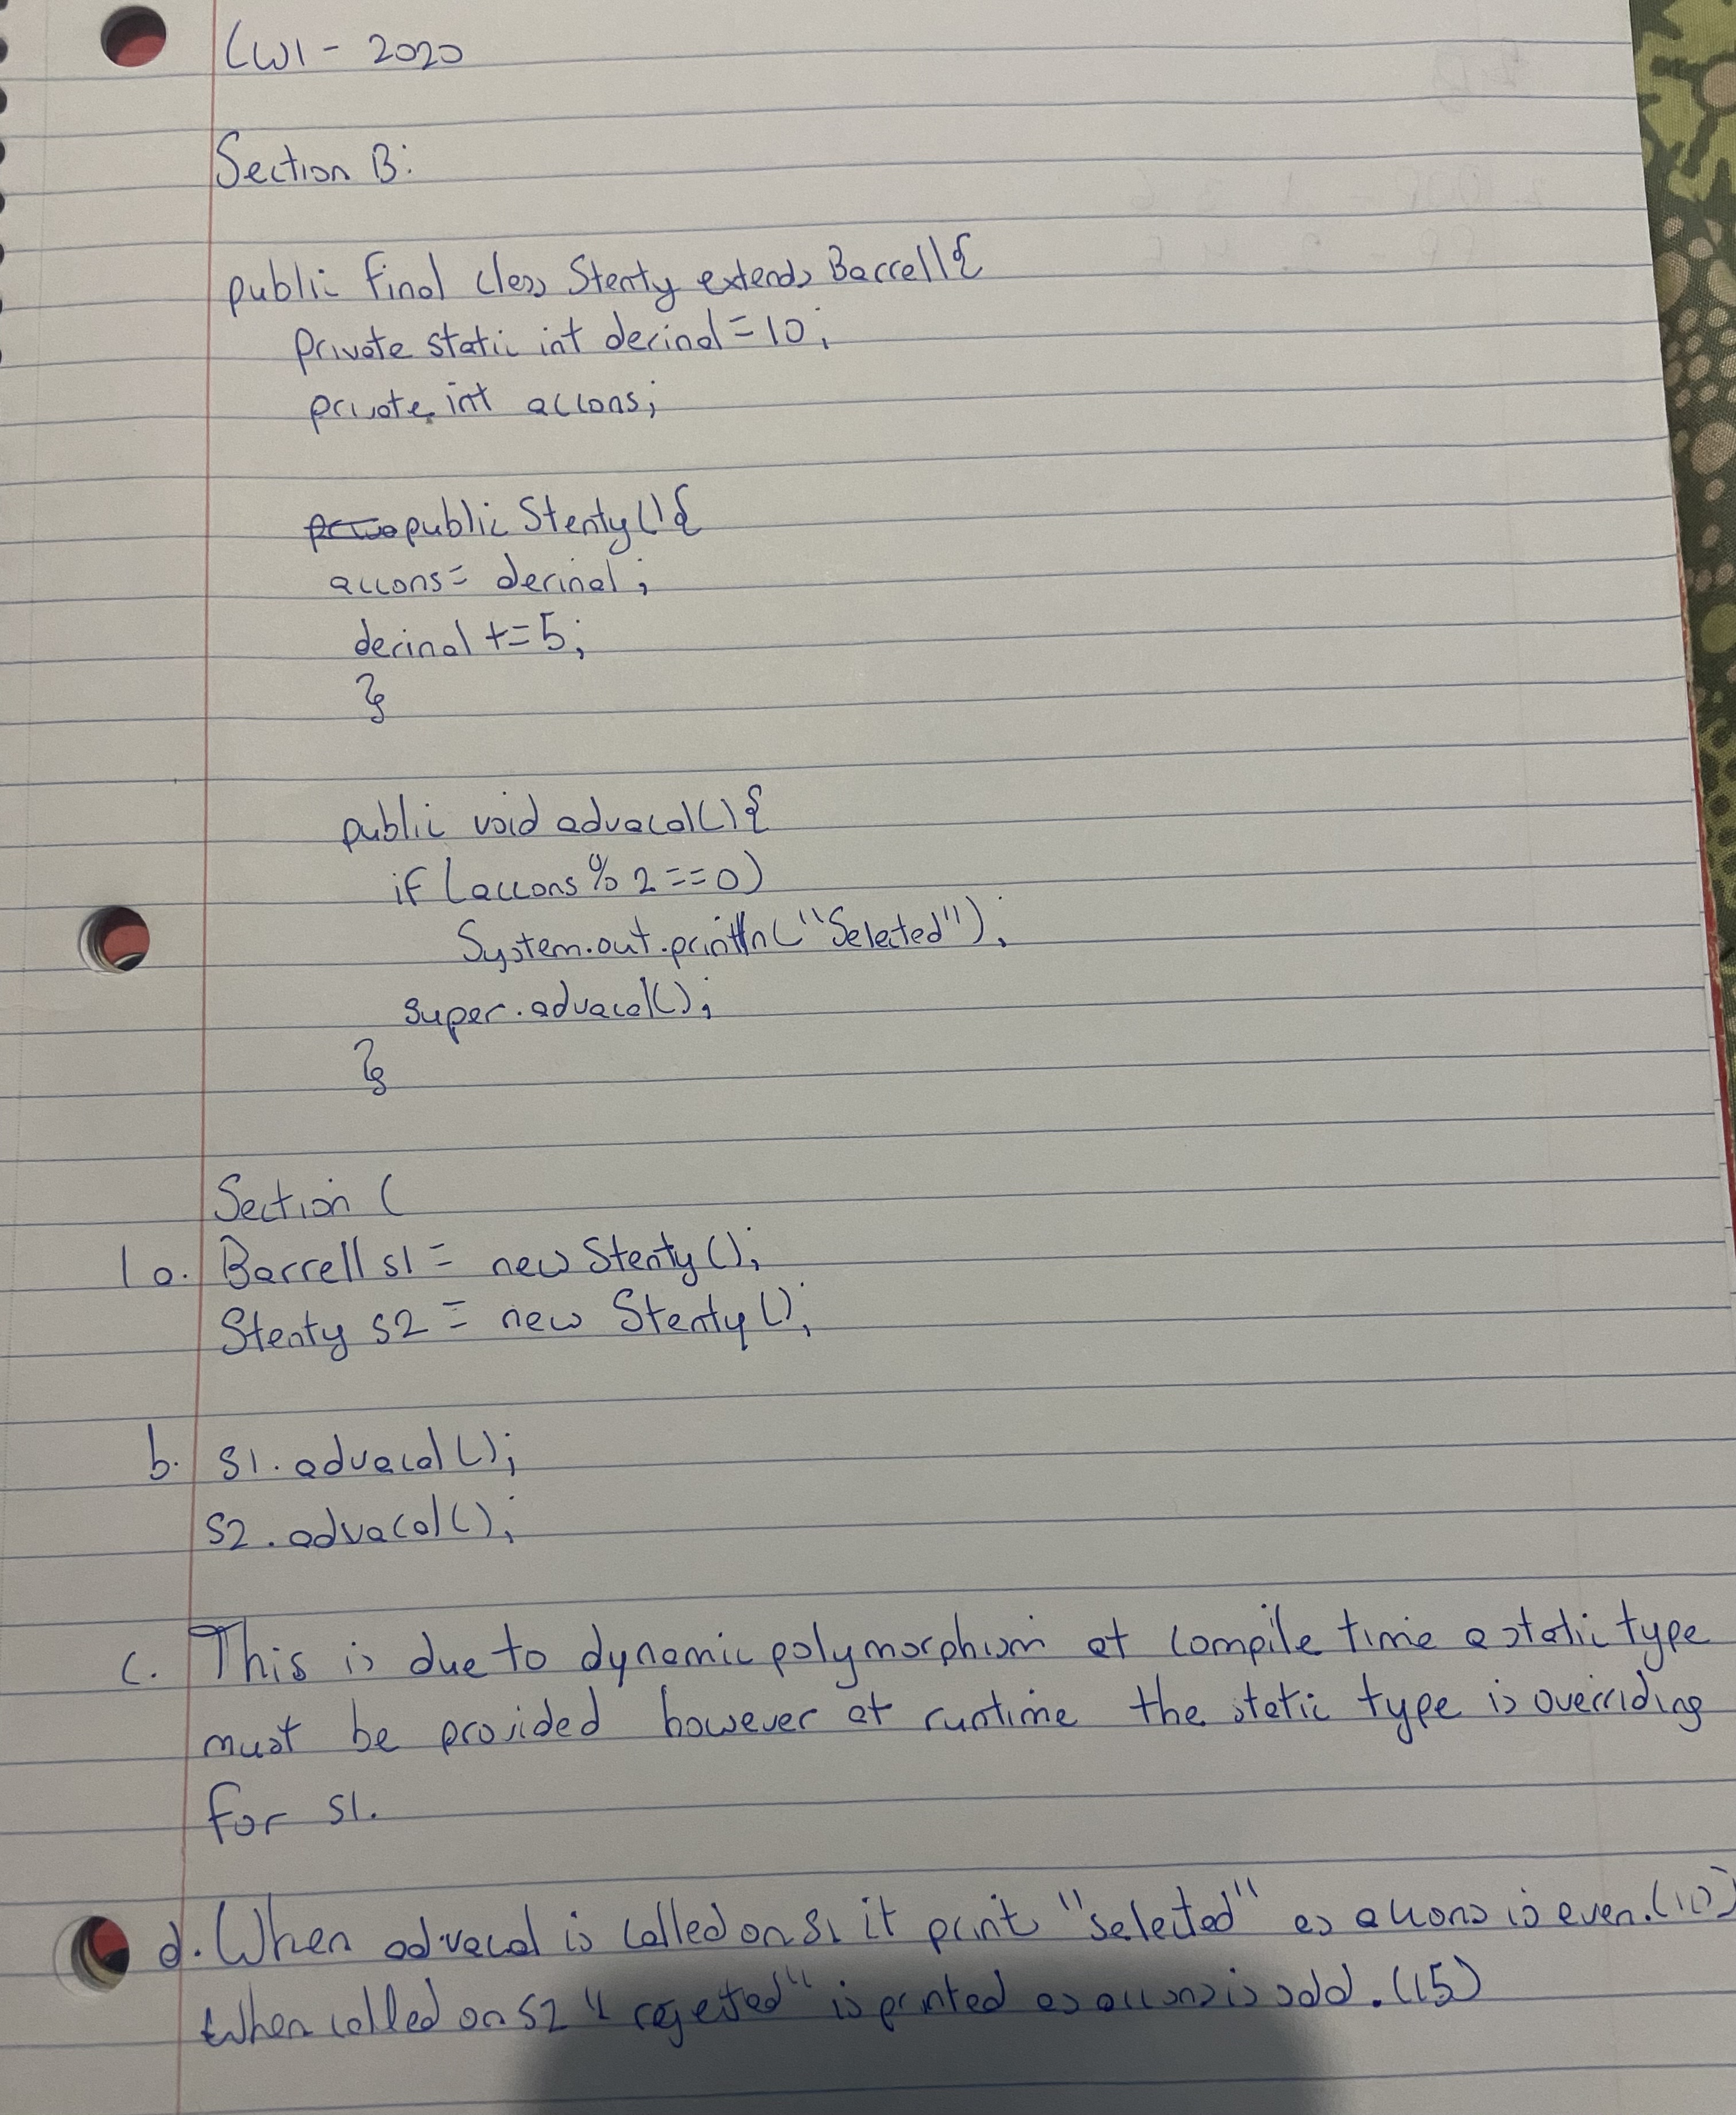 CW1 - 2020
Section B:
public final class Stenty extends Barrell{
private static int decinal = 10;
private int accons;
public Stenty(){
accons = decinal;
decinal += 5;
}
public void advacal(){
if (accons % 2 == 0)
System.out.println("Selected");
super.advacal();
}
Section C
1a. Barrell s1 = new Stenty();
Stenty s2 = new Stenty();
b. s1.advacal();
s2.advacal();
c. This is due to dynamic polymorphism at compile time a static type
must be provided however at runtime the static type is overriding
for s1.
d. When advacal is called on s1 it prints "selected" as accons is even. (10)
When called on s2 "rejected" is printed as accons is odd. (15)